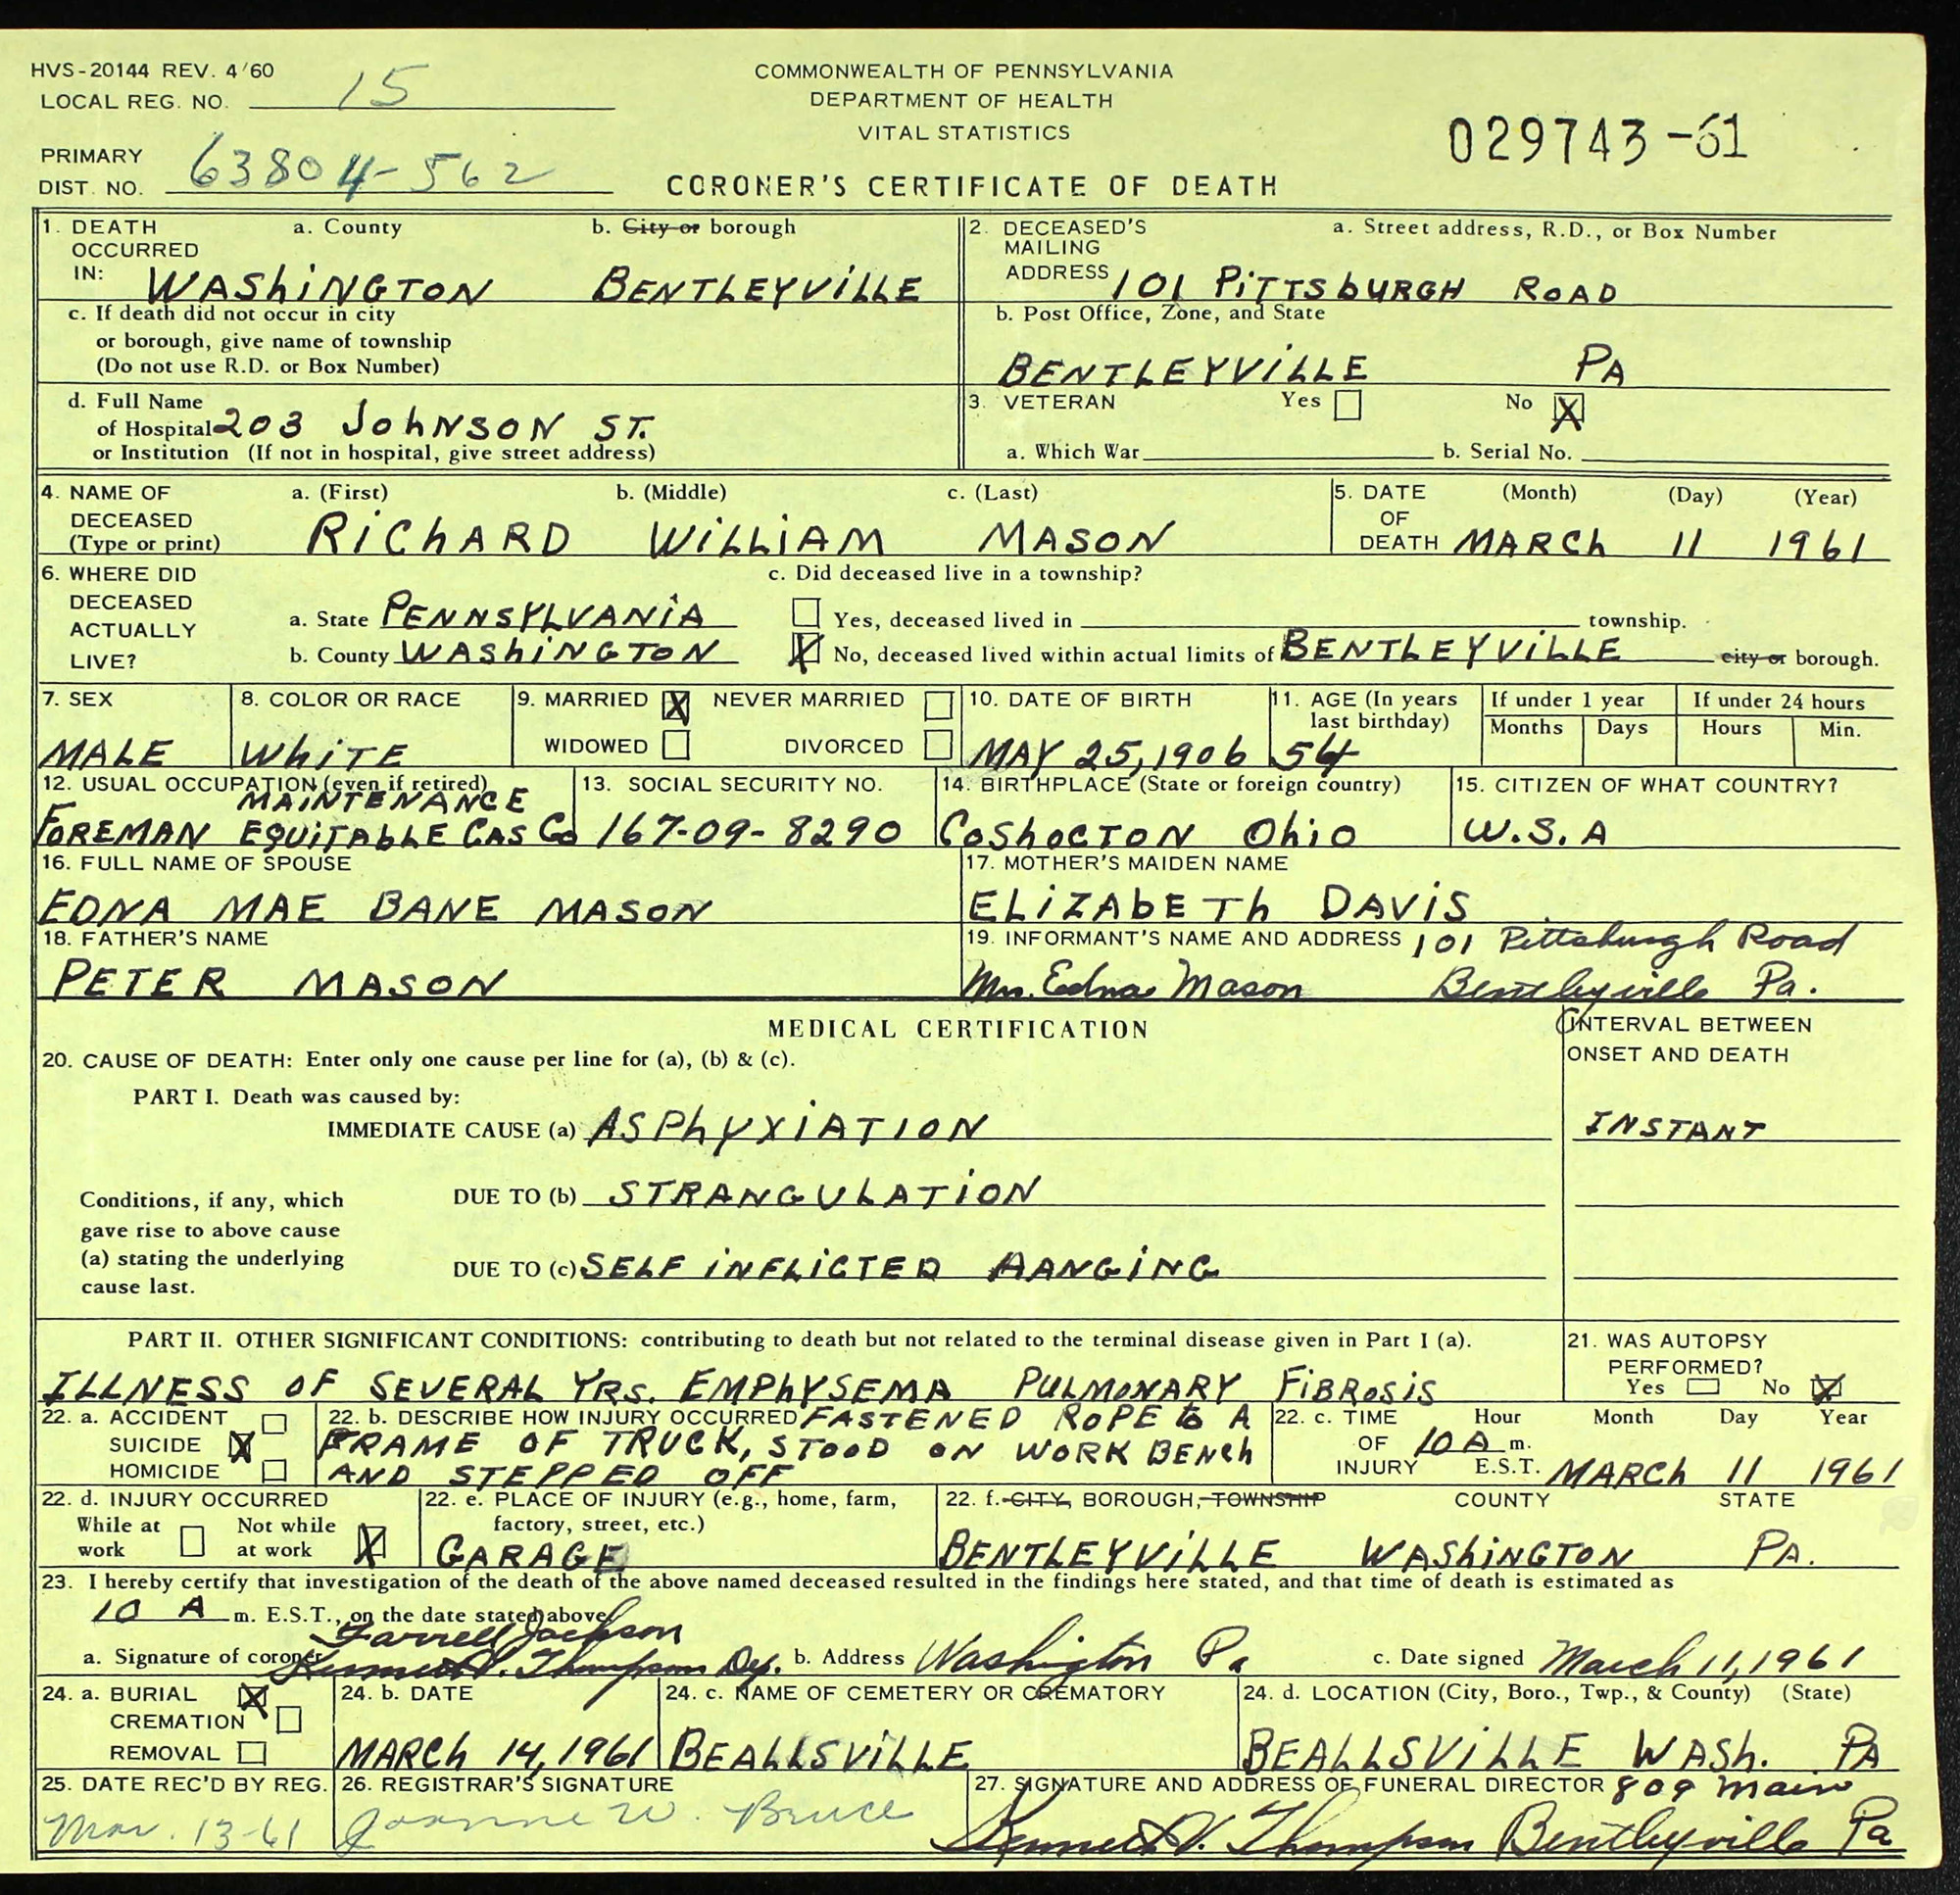 HVS-20144 REV. 4/60
LOCAL REG. NO. 15
COMMONWEALTH OF PENNSYLVANIA
DEPARTMENT OF HEALTH
VITAL STATISTICS
029743-61
PRIMARY
DIST. NO. 63804-562
CORONER'S CERTIFICATE OF DEATH
1. DEATH OCCURRED IN: a. County b. City or borough
WASHINGTON BENTLEYVILLE
2. DECEASED'S MAILING ADDRESS a. Street address, R.D., or Box Number
101 PITTSBURGH ROAD
c. If death did not occur in city
or borough, give name of township
(Do not use R.D. or Box Number)
b. Post Office, Zone, and State
BENTLEYVILLE PA
d. Full Name
of Hospital 203 JOHNSON ST.
or Institution (If not in hospital, give street address)
3. VETERAN Yes No X
a. Which War b. Serial No.
4. NAME OF DECEASED (Type or print) a. (First) b. (Middle) c. (Last)
RICHARD WILLIAM MASON
5. DATE OF DEATH (Month) (Day) (Year)
MARCH 11 1961
6. WHERE DID DECEASED ACTUALLY LIVE?
a. State PENNSYLVANIA
b. County WASHINGTON
c. Did deceased live in a township?
Yes, deceased lived in township.
X No, deceased lived within actual limits of BENTLEYVILLE city or borough.
7. SEX
MALE
8. COLOR OR RACE
WHITE
9. MARRIED X NEVER MARRIED
WIDOWED DIVORCED
10. DATE OF BIRTH
MAY 25, 1906
11. AGE (In years last birthday)
54
If under 1 year
Months Days
If under 24 hours
Hours Min.
12. USUAL OCCUPATION (even if retired)
MAINTENANCE
FOREMAN EQUITABLE GAS Co
13. SOCIAL SECURITY NO.
167-09-8290
14. BIRTHPLACE (State or foreign country)
COSHOCTON OHIO
15. CITIZEN OF WHAT COUNTRY?
U.S.A
16. FULL NAME OF SPOUSE
EDNA MAE BANE MASON
17. MOTHER'S MAIDEN NAME
ELIZABETH DAVIS
18. FATHER'S NAME
PETER MASON
19. INFORMANT'S NAME AND ADDRESS 101 Pittsburgh Road
Mrs. Edna Mason Bentleyville Pa.
MEDICAL CERTIFICATION
INTERVAL BETWEEN
ONSET AND DEATH
20. CAUSE OF DEATH: Enter only one cause per line for (a), (b) & (c).
PART I. Death was caused by:
IMMEDIATE CAUSE (a) ASPHYXIATION INSTANT
Conditions, if any, which
gave rise to above cause
(a) stating the underlying
cause last.
DUE TO (b) STRANGULATION
DUE TO (c) SELF INFLICTED HANGING
PART II. OTHER SIGNIFICANT CONDITIONS: contributing to death but not related to the terminal disease given in Part I (a).
ILLNESS OF SEVERAL YRS. EMPHYSEMA PULMONARY FIBROSIS
21. WAS AUTOPSY
PERFORMED?
Yes No X
22. a. ACCIDENT
SUICIDE X
HOMICIDE
22. b. DESCRIBE HOW INJURY OCCURRED FASTENED ROPE to A
FRAME OF TRUCK, STOOD ON WORK BENCH
AND STEPPED OFF
22. c. TIME OF INJURY Hour Month Day Year
10 A m. E.S.T. MARCH 11 1961
22. d. INJURY OCCURRED
While at work Not while at work X
22. e. PLACE OF INJURY (e.g., home, farm,
factory, street, etc.)
GARAGE
22. f. CITY, BOROUGH, TOWNSHIP COUNTY STATE
BENTLEYVILLE WASHINGTON PA.
23. I hereby certify that investigation of the death of the above named deceased resulted in the findings here stated, and that time of death is estimated as
10 A m. E.S.T., on the date stated above
Farrell Jackson
a. Signature of coroner Kenneth V. Thompson Dep. b. Address Washington Pa c. Date signed March 11, 1961
24. a. BURIAL X
CREMATION
REMOVAL
24. b. DATE
MARCH 14, 1961
24. c. NAME OF CEMETERY OR CREMATORY
BEALLSVILLE
24. d. LOCATION (City, Boro., Twp., & County) (State)
BEALLSVILLE WASH. PA
25. DATE REC'D BY REG.
Mar. 13-61
26. REGISTRAR'S SIGNATURE
Joanne W. Bruce
27. SIGNATURE AND ADDRESS OF FUNERAL DIRECTOR 809 Main
Kenneth V. Thompson Bentleyville Pa